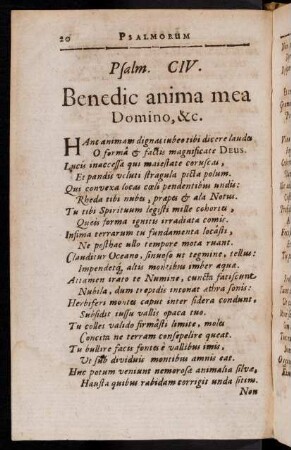 20 PSALMORUM
Psalm. CIV.
Benedic anima mea
Domino, &c.
HAnc animam dignas iubeo tibi dicere laudes
O formâ & factis magnificate DEUS.
Lucis inaccessa qui maiestate coruscas,
Et pandis veluti stragula picta polum.
Qui convexa locas cœli pendentibus undis:
Rheda tibi nubes, præpes & ala Notus.
Tu tibi Spirituum legisti mille cohortes,
Queis forma ignitis irradiata comis.
Infima terrarum tu fundamenta locâsti,
Ne posthac ullo tempore mota ruant.
Clauditur Oceano, sinuoso ut tegmine, tellus:
Impendetq, altis montibus imber aquæ.
Attamen irato te Numine, cuncta fatiscunt
Nubila, dum trepidis intonat æthra sonis:
Herbiferi montes caput inter sidera condunt,
Subsidit tussu vallis opaca tuo.
Tu colles valido firmâsti limite, moles
Concita ne terram consepelire queat.
Tu bullire facis fontes è vallibus imis,
Ut sit dividuis montibus amnis eat.
Huc potum veniunt nemorosæ animalia silvæ,
Hausta quibus rabidam corrigit unda sitim.
Non